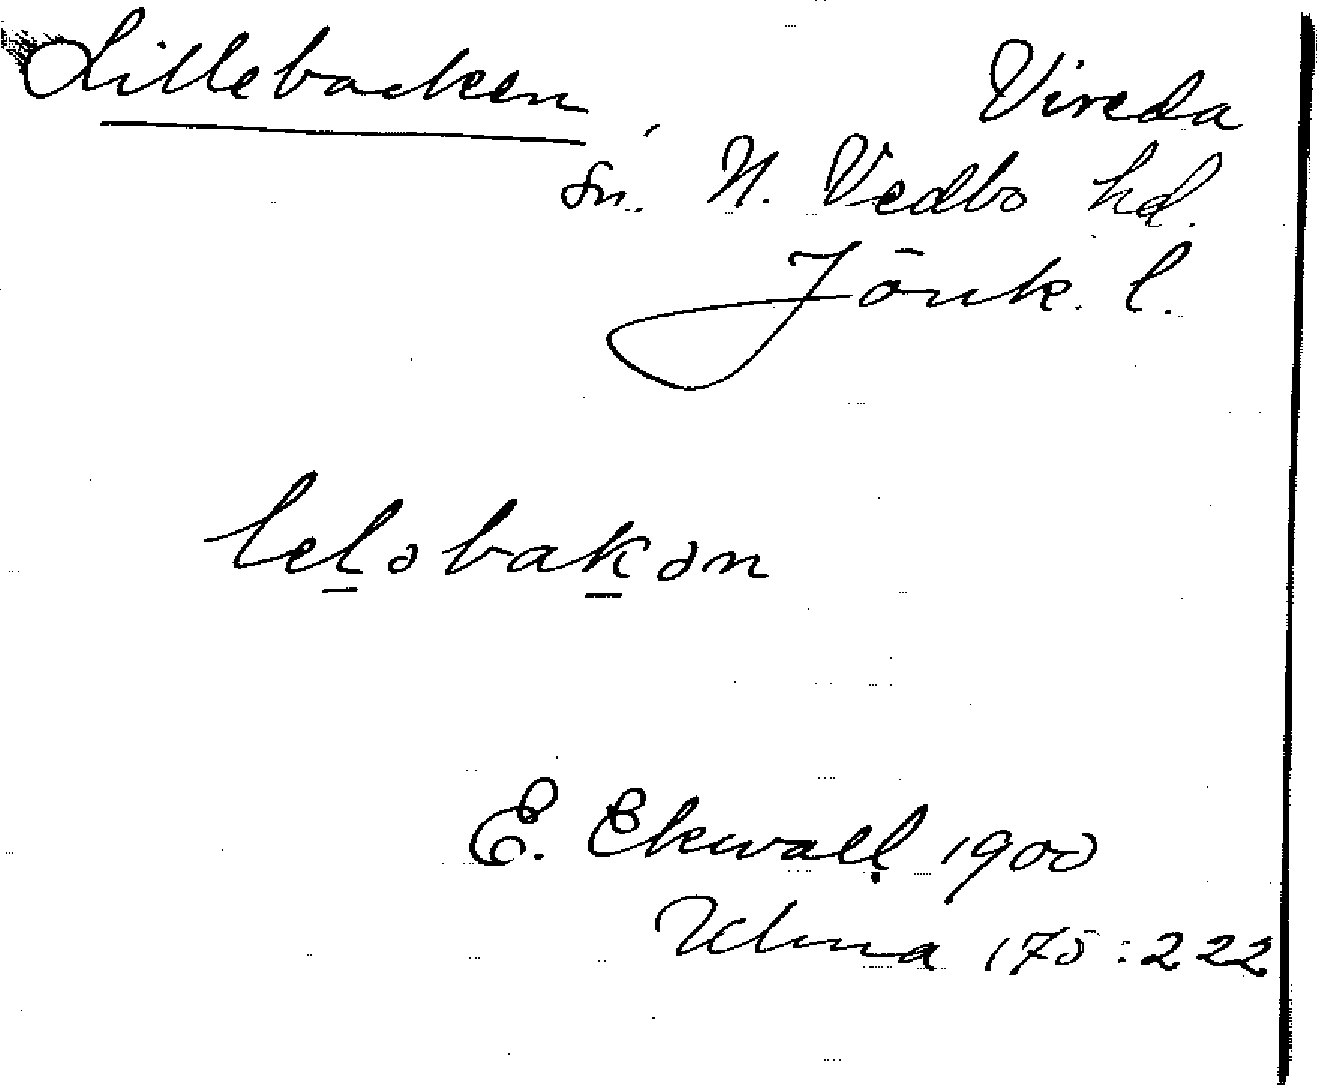 Lillebacken Vireda
sn. N. Vedbo hd.
Jönk. l.
lel̲əbak̲ən
E. Ekwall 1900
Ulma 175:222